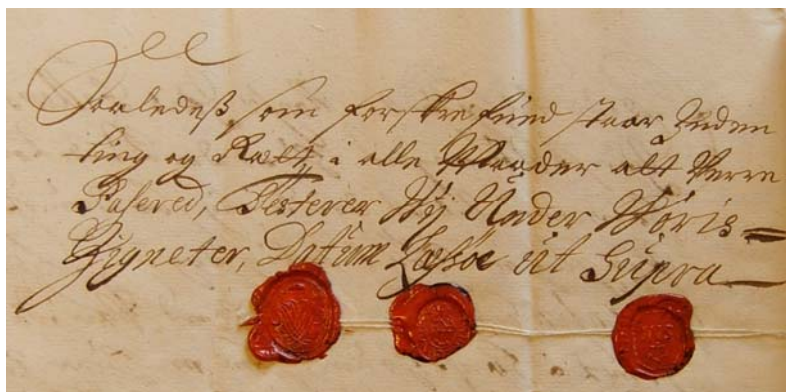 Saaledeß som forskrefuid staar Inden
ting og Rætt, i alle Maader alt Verre
Pasered, Testerer Wij Under Woris=
Zigneter, Datum Læsøe üt Süpra